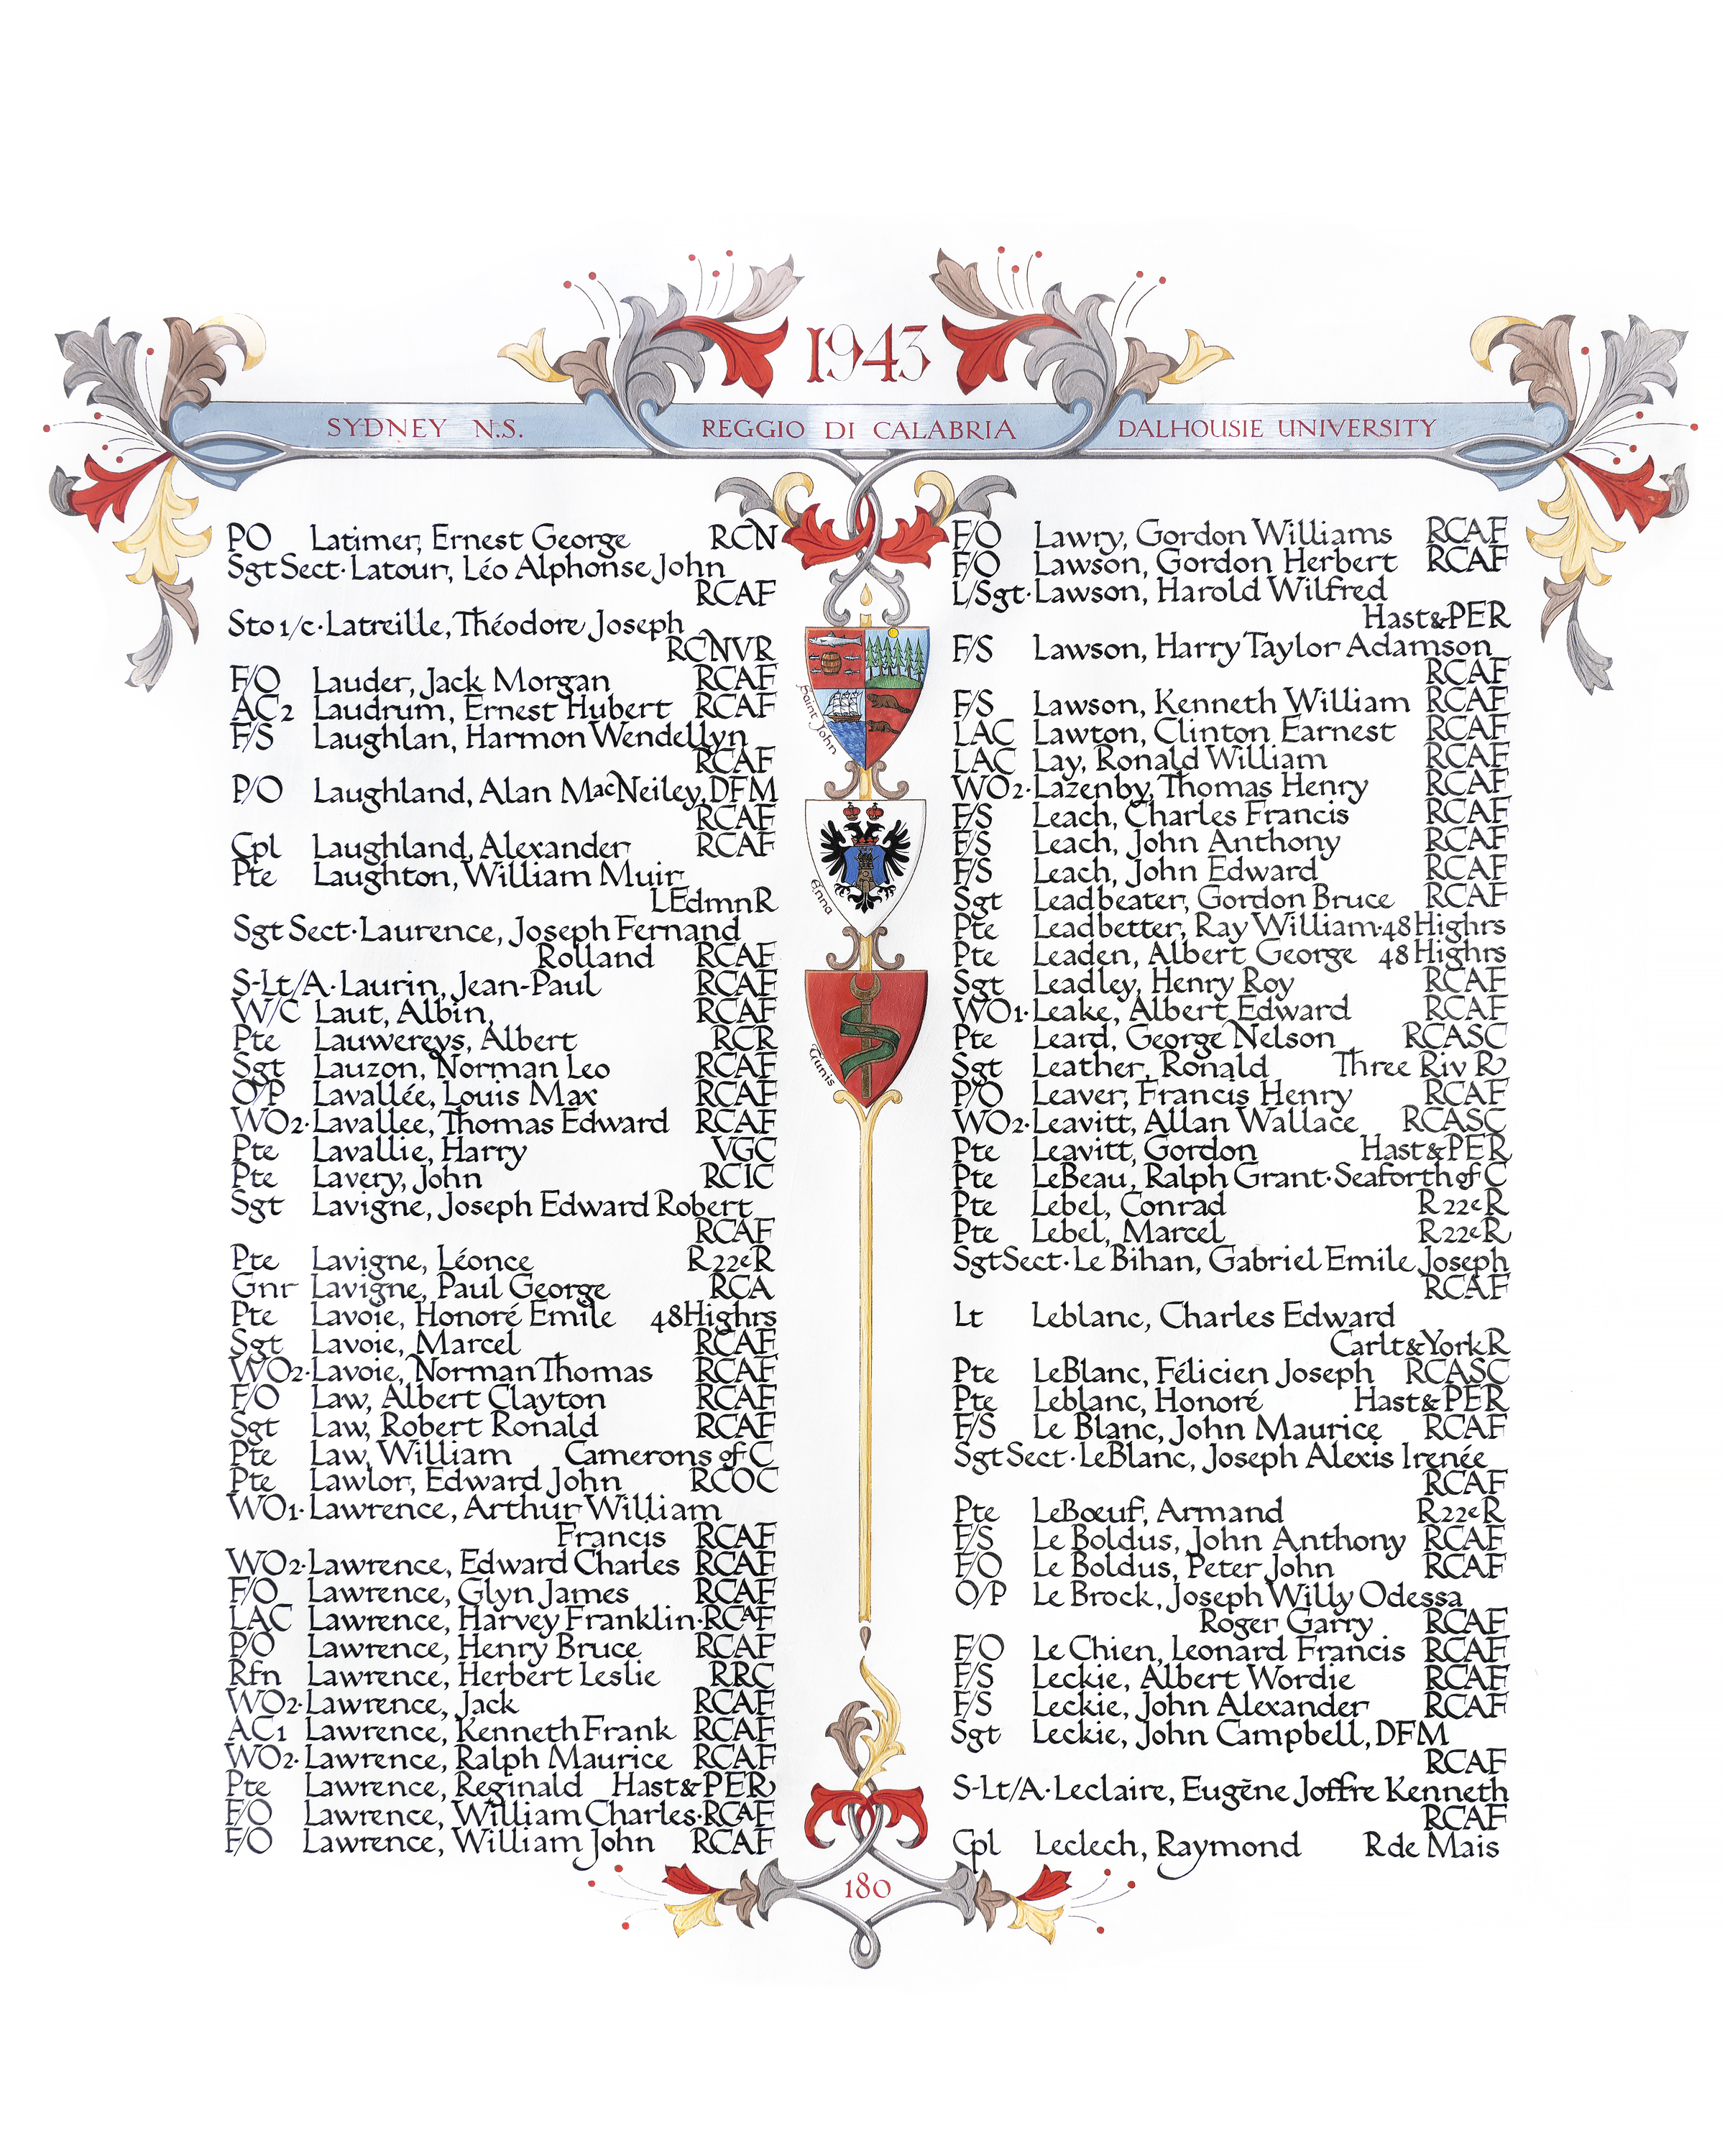 1943
SYDNEY N.S. REGGIO DI CALABRIA DALHOUSIE UNIVERSITY
PO Latimer, Ernest George RCN
Sgt Sect· Latour, Léo Alphonse John
RCAF
Sto 1/c· Latreille, Théodore Joseph
RCNVR
F/O Lauder, Jack Morgan RCAF
AC2 Laudrum, Ernest Hubert RCAF
F/S Laughlan, Harmon Wendellyn
RCAF
P/O Laughland, Alan MacNeiley, DFM
RCAF
Cpl Laughland, Alexander RCAF
Pte Laughton, William Muir
LEdmnR
Sgt Sect· Laurence, Joseph Fernand
Rolland RCAF
S-Lt/A· Laurin, Jean-Paul RCAF
W/C Laut, Albin, RCAF
Pte Lauwereys, Albert RCR
Sgt Lauzon, Norman Leo RCAF
O/P Lavallée, Louis Max RCAF
WO2· Lavallee, Thomas Edward RCAF
Pte Lavallie, Harry VGC
Pte Lavery, John RCIC
Sgt Lavigne, Joseph Edward Robert
RCAF
Pte Lavigne, Léonce R22eR
Gnr Lavigne, Paul George RCA
Pte Lavoie, Honoré Emile 48Highrs
Sgt Lavoie, Marcel RCAF
WO2· Lavoie, Norman Thomas RCAF
F/O Law, Albert Clayton RCAF
Sgt Law, Robert Ronald RCAF
Pte Law, William Camerons of C
Pte Lawlor, Edward John RCOC
WO1· Lawrence, Arthur William
Francis RCAF
WO2· Lawrence, Edward Charles RCAF
F/O Lawrence, Glyn James RCAF
LAC Lawrence, Harvey Franklin· RCAF
P/O Lawrence, Henry Bruce RCAF
Rfn Lawrence, Herbert Leslie RRC
WO2· Lawrence, Jack RCAF
AC1 Lawrence, Kenneth Frank RCAF
WO2· Lawrence, Ralph Maurice RCAF
Pte Lawrence, Reginald Hast&PER
F/O Lawrence, William Charles· RCAF
F/O Lawrence, William John RCAF
Saint John
Enna
Tunis
F/O Lawry, Gordon Williams RCAF
F/O Lawson, Gordon Herbert RCAF
L/Sgt· Lawson, Harold Wilfred
Hast&PER
F/S Lawson, Harry Taylor Adamson
RCAF
F/S Lawson, Kenneth William RCAF
LAC Lawton, Clinton Earnest RCAF
LAC Lay, Ronald William RCAF
WO2· Lazenby, Thomas Henry RCAF
F/S Leach, Charles Francis RCAF
F/S Leach, John Anthony RCAF
F/S Leach, John Edward RCAF
Sgt Leadbeater, Gordon Bruce RCAF
Pte Leadbetter, Ray William· 48Highrs
Pte Leaden, Albert George 48Highrs
Sgt Leadley, Henry Roy RCAF
WO1· Leake, Albert Edward RCAF
Pte Leard, George Nelson RCASC
Sgt Leather, Ronald Three Riv R
P/O Leaver, Francis Henry RCAF
WO2· Leavitt, Allan Wallace RCASC
Pte Leavitt, Gordon Hast&PER
Pte LeBeau, Ralph Grant· Seaforth of C
Pte Lebel, Conrad R22eR
Pte Lebel, Marcel R22eR
Sgt Sect· Le Bihan, Gabriel Emile Joseph
RCAF
Lt Leblanc, Charles Edward
Carlt&YorkR
Pte LeBlanc, Félicien Joseph RCASC
Pte Leblanc, Honoré Hast&PER
F/S Le Blanc, John Maurice RCAF
Sgt Sect· LeBlanc, Joseph Alexis Irenée
RCAF
Pte LeBœuf, Armand R22eR
F/S Le Boldus, John Anthony RCAF
F/O Le Boldus, Peter John RCAF
O/P Le Brock, Joseph Willy Odessa
Roger Garry RCAF
F/O Le Chien, Leonard Francis RCAF
F/S Leckie, Albert Wordie RCAF
F/S Leckie, John Alexander RCAF
Sgt Leckie, John Campbell, DFM
RCAF
S-Lt/A· Leclaire, Eugène Joffre Kenneth
RCAF
Cpl Leclech, Raymond R de Mais
180